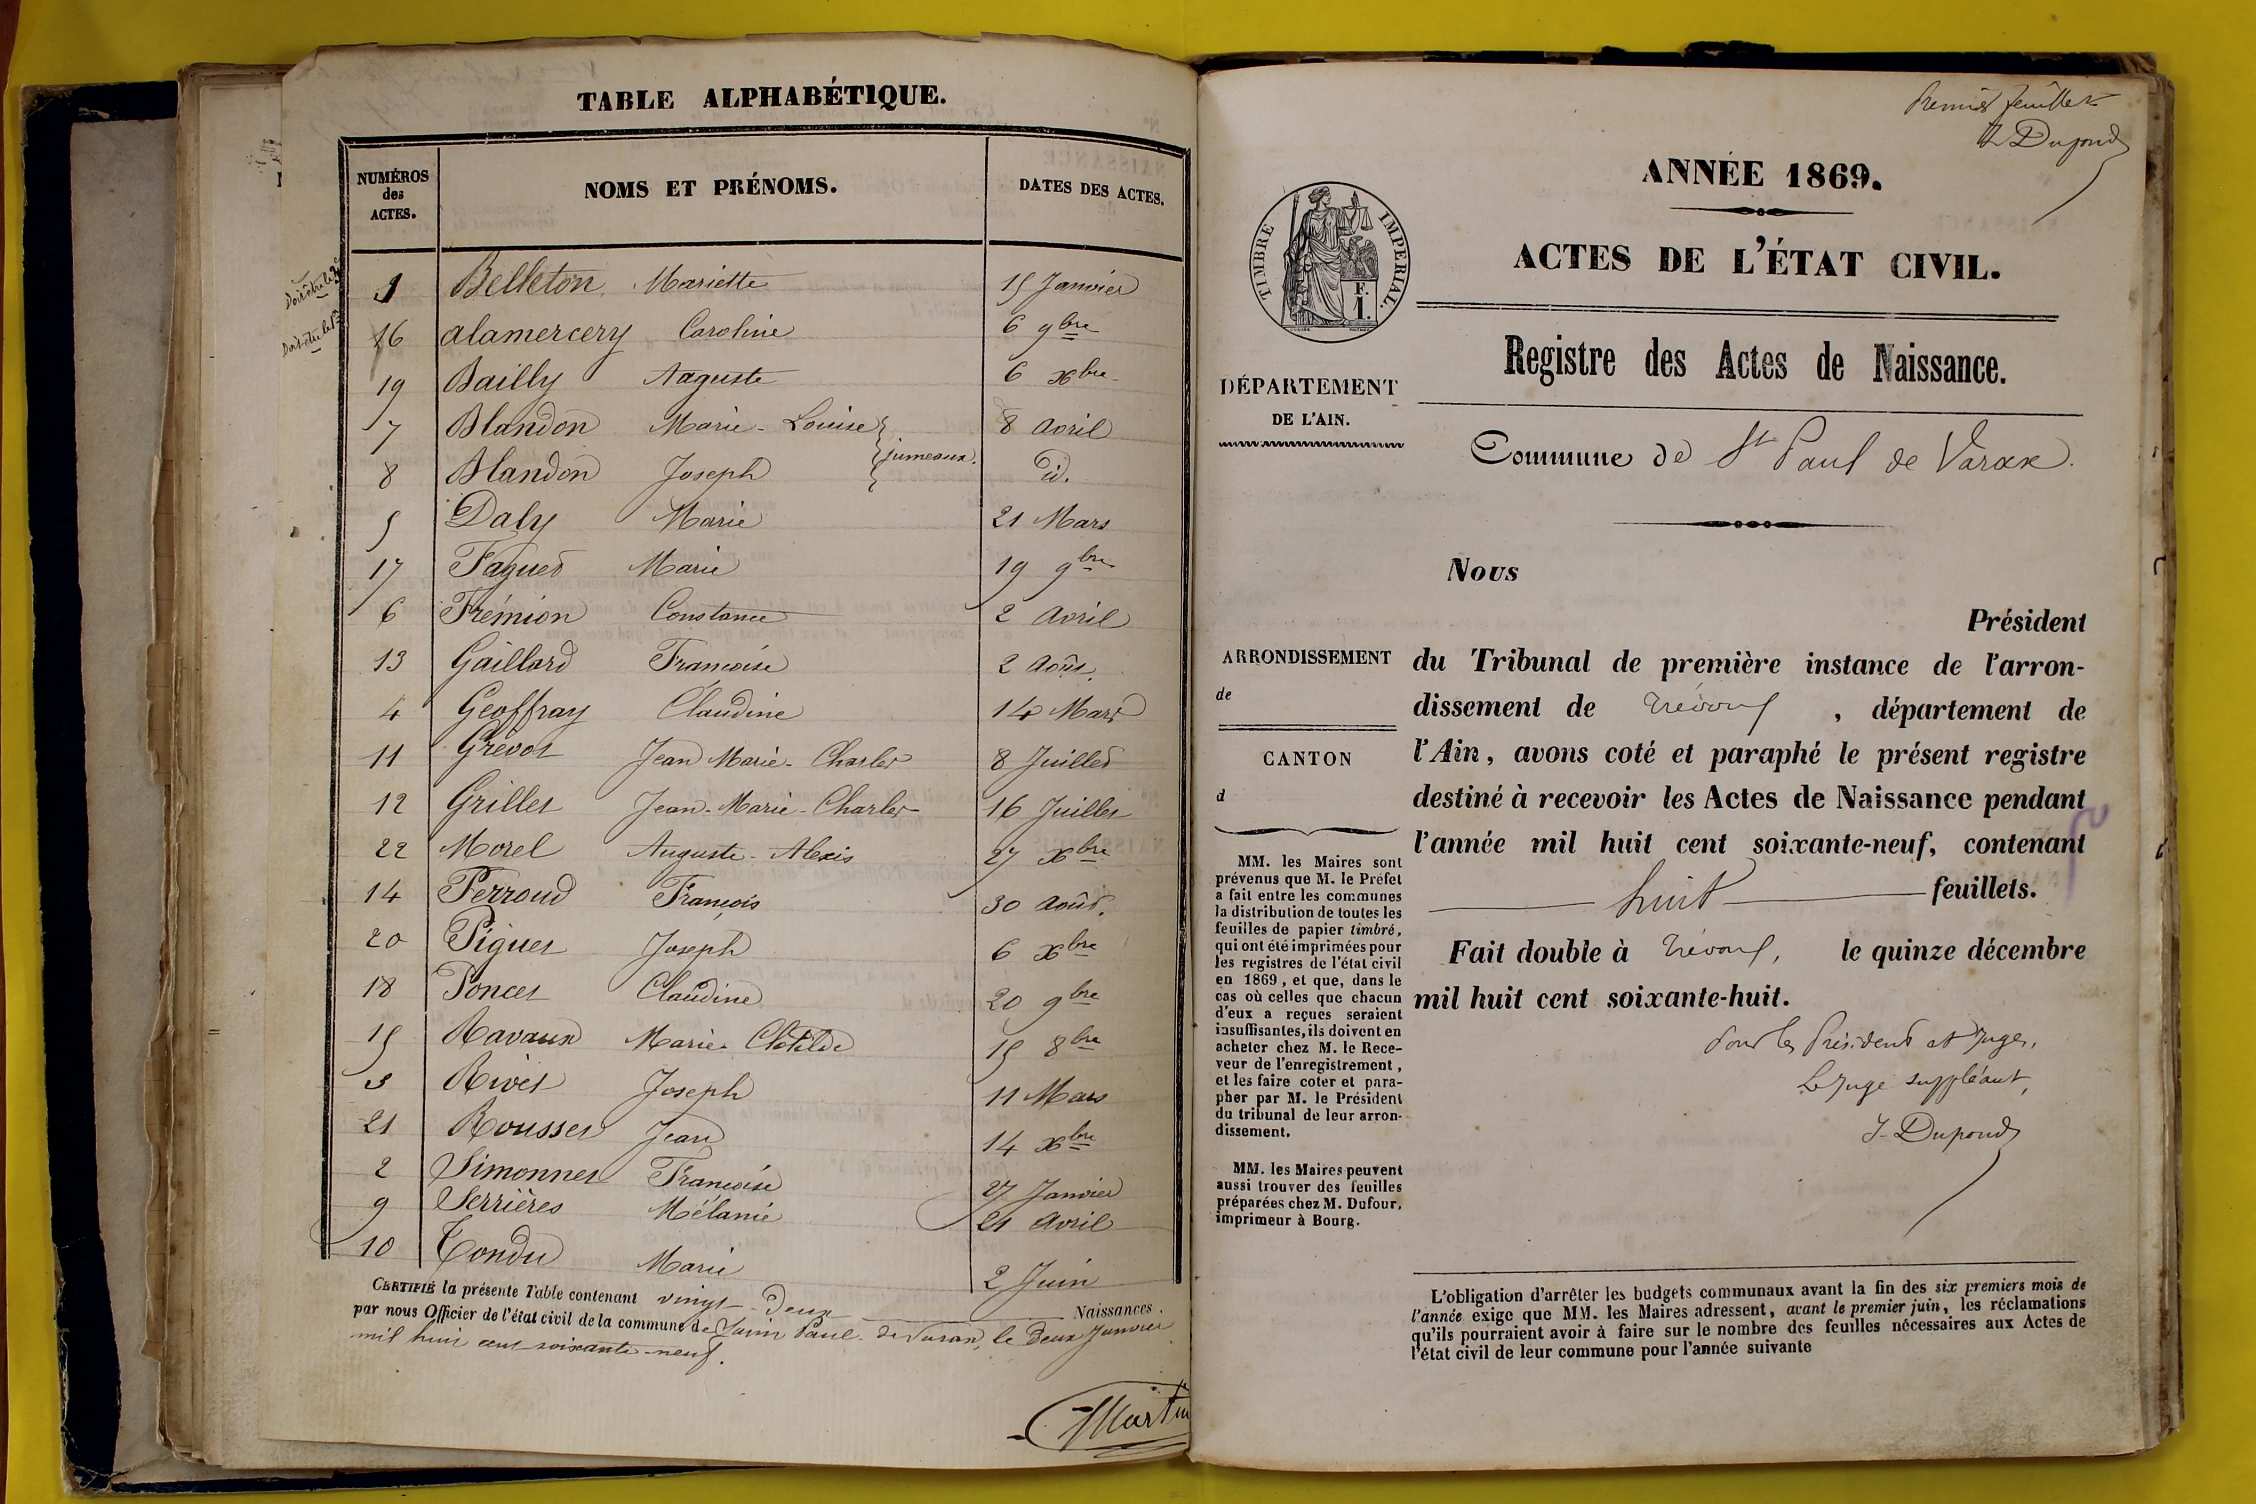 TABLE ALPHABÉTIQUE.
NUMÉROS
des
ACTES.
NOMS ET PRÉNOMS.
DATES DES ACTES.
Doit être le 3e
Doit être le 1er
1 Belleton Mariette 15 Janvier
16 alamercery Caroline 6 9bre
19 Bailly Auguste 6 xbre
7 Blandon Marie-Louise 8 avril
jumeaux.
8 Blandon Joseph id.
5 Daly Marie 21 Mars
17 Faguet Marie 19 9bre
6 Frémion Constance 2 avril
13 Gaillard Françoise 2 août.
4 Geoffray Claudine 14 Mars
11 Grévot Jean Marie-Charles 8 Juillet
12 Grillet Jean-Marie-Charles 16 Juillet
22 Morel Auguste-Alexis 27 xbre
14 Perroud François 30 août.
20 Piguet Joseph 6 xbre
18 Poncet Claudine 20 9bre
15 Ravaux Marie Clotilde 15 8bre
3 Rivet Joseph 11 Mars
21 Rousset Jean 14 xbre
2 Simonnet Françoise 27 Janvier
9 Serrières Mélanie 21 avril
10 Tondu Marie 2 Juin
CERTIFIÉ la présente Table contenant vingt-deux Naissances.
par nous Officier de l'état civil de la commune de Saint Paul-de Varax, le deux Janvier
mil huit cent soixante-neuf.
Martin
Premier feuillet
Dupond
ANNÉE 1869.
ACTES DE L'ÉTAT CIVIL.
TIMBRE IMPÉRIAL.
F.
1.
Registre des Actes de Naissance.
DÉPARTEMENT
DE L'AIN.
Commune de St Paul de Varax.
Nous
Président
ARRONDISSEMENT
de
CANTON
d
du Tribunal de première instance de l'arron-
dissement de Trévoux, département de
l'Ain, avons coté et paraphé le présent registre
destiné à recevoir les Actes de Naissance pendant
l'année mil huit cent soixante-neuf, contenant
huit feuillets.
Fait double à Trévoux, le quinze décembre
mil huit cent soixante-huit.
Pour les Président et Juges,
Le Juge suppléant,
J. Dupond
MM. les Maires sont
prévenus que M. le Préfet
a fait entre les communes
la distribution de toutes les
feuilles de papier timbré,
qui ont été imprimées pour
les registres de l'état civil
en 1869, et que, dans le
cas où celles que chacun
d'eux a reçues seraient
insuffisantes, ils doivent en
acheter chez M. le Rece-
veur de l'enregistrement,
et les faire coter et para-
pher par M. le Président
du tribunal de leur arron-
dissement.
MM. les Maires peuvent
aussi trouver des feuilles
préparées chez M. Dufour,
imprimeur à Bourg.
L'obligation d'arrêter les budgets communaux avant la fin des six premiers mois de
l'année exige que MM. les Maires adressent, avant le premier juin, les réclamations
qu'ils pourraient avoir à faire sur le nombre des feuilles nécessaires aux Actes de
l'état civil de leur commune pour l'année suivante